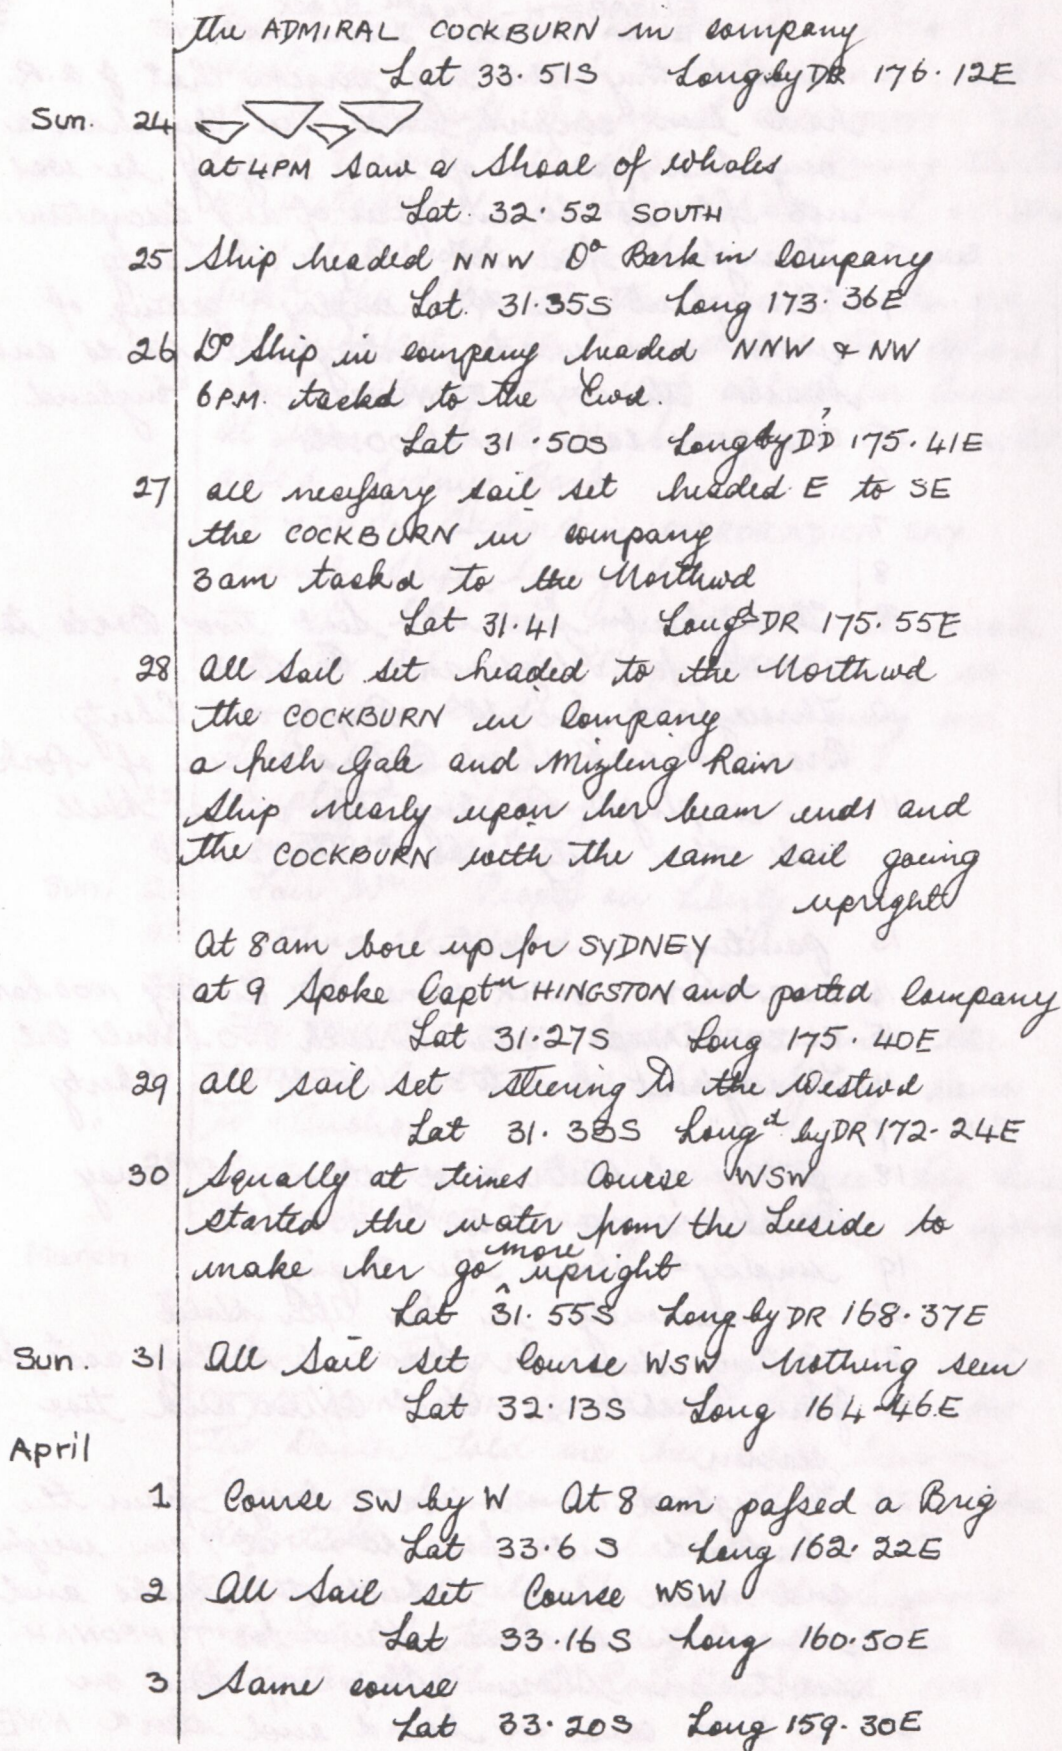 the ADMIRAL COCKBURN in company
Lat 33·51S Long by DR 176·12E
Sun. 24
at 4PM saw a Shoal of Whales
Lat. 32·52 SOUTH
25 Ship headed NNW Do Bark in Company
Lat. 31·35S Long 173·36E
26 Do Ship in company headed NNW & NW
6 P.M. tackd to the Ewd.
Lat 31·50S Long by DD ? 175·41E
27 all necessary sail set headed E to SE
the COCKBURN in company
3am tackd to the Northwd
Lat 31·41 Long DR 175·55E
28 All Sail set headed to the Northwd
the COCKBURN in Company
a fresh Gale and Mizling Rain
Ship nearly upon her beam ends and
the COCKBURN with the same sail going
upright
At 8am bore up for SYDNEY
at 9 Spoke Captn HINGSTON and parted Company
Lat 31·27S Long 175·40E
29 all sail set steering to the Westwd
Lat 31·38S Longd by DR 172·24E
30 Squally at times Course WSW
started the water from the Leeside to
make her go more upright
Lat 31·55S Long by DR 168·37E
Sun 31 All Sail set Course WSW Nothing seen
Lat 32·13S Long 164·46E
April
1 Course SW by W At 8 am passed a Brig
Lat 33·6 S Long 162·22E
2 All Sail set Course WSW
Lat 33·16 S Long 160·50E
3 Same course
Lat 33·20S Long 159·30E